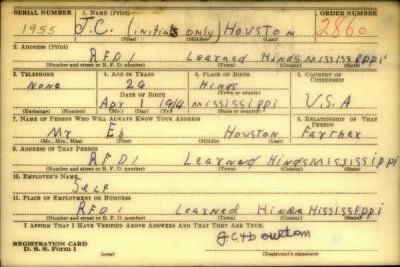 SERIAL NUMBER 1. NAME (Print) ORDER NUMBER
1955 J.C. (initials only) HOUSTON 2860
(First) (Middle) (Last)
2. ADDRESS (Print)
RFD 1 Learned Hinds Mississippi
(Number and street or R. F. D. number) (Town) (County) (State)
3. TELEPHONE 4. AGE IN YEARS 5. PLACE OF BIRTH 6. COUNTRY OF CITIZENSHIP
None 26 Hinds
DATE OF BIRTH
Apr 1 1914 Mississippi U.S.A
(Exchange) (Number) (Mo.) (Day) (Yr.) (State or country)
7. NAME OF PERSON WHO WILL ALWAYS KNOW YOUR ADDRESS 8. RELATIONSHIP OF THAT PERSON
Mr Eb Houston Farther
(Mr., Mrs., Miss) (First) (Middle) (Last)
9. ADDRESS OF THAT PERSON
RFD 1 Learned Hinds Mississippi
(Number and street or R. F. D. number) (Town) (County) (State)
10. EMPLOYER'S NAME
Self
11. PLACE OF EMPLOYMENT OR BUSINESS
RFD 1 Learned Hinds Mississippi
(Number and street or R. F. D. number) (Town) (County) (State)
I AFFIRM THAT I HAVE VERIFIED ABOVE ANSWERS AND THAT THEY ARE TRUE.
REGISTRATION CARD
D. S. S. Form 1
J C Houston
(Registrant's signature)